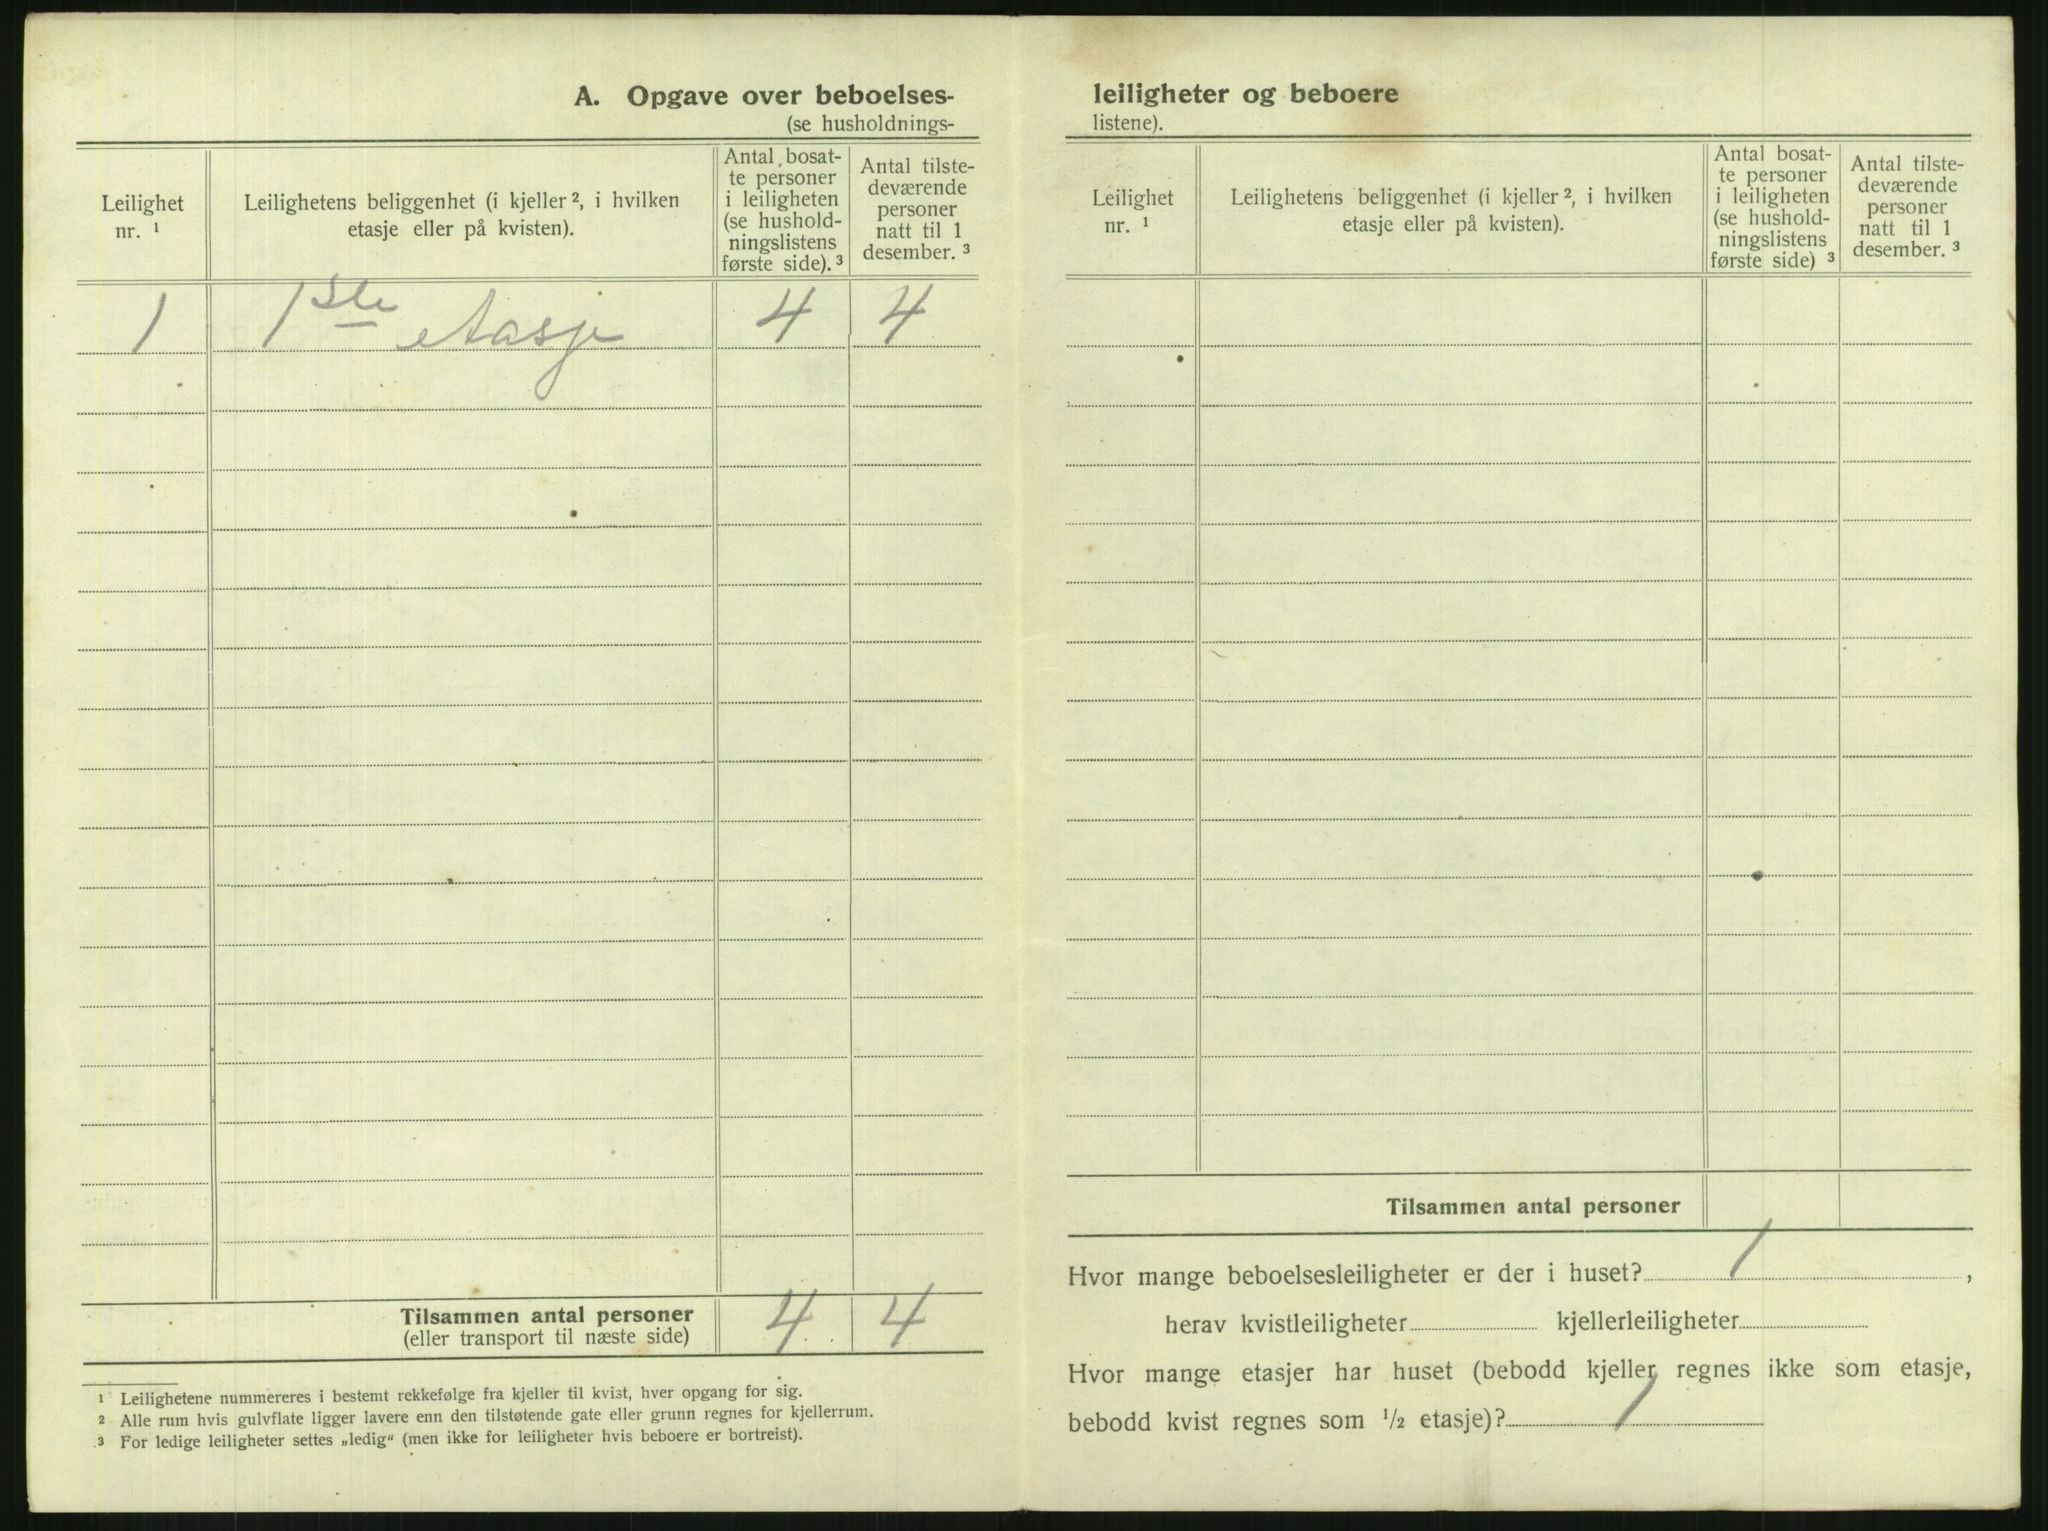 A. Opgave over beboelses-
(se husholdnings-
Leilighet nr. ¹
Leilighetens beliggenhet (i kjeller ², i hvilken etasje eller på kvisten).
Antal bosat-
te personer
i leiligheten
(se hushold-
ningslistens
første side). ³
Antal tilste-
deværende
personer
natt til 1
desember. ³
1 1ste etasje 4 4
Tilsammen antal personer 4 4
(eller transport til næste side)
¹ Leilighetene nummereres i bestemt rekkefølge fra kjeller til kvist, hver opgang for sig.
² Alle rum hvis gulvflate ligger lavere enn den tilstøtende gate eller grunn regnes for kjellerrum.
³ For ledige leiligheter settes „ledig“ (men ikke for leiligheter hvis beboere er bortreist).
leiligheter og beboere
listene).
Leilighet nr. ¹
Leilighetens beliggenhet (i kjeller ², i hvilken etasje eller på kvisten).
Antal bosat-
te personer
i leiligheten
(se hushold-
ningslistens
første side) ³
Antal tilste-
deværende
personer
natt til 1
desember. ³
Tilsammen antal personer
Hvor mange beboelsesleiligheter er der i huset? 1 ,
herav kvistleiligheter kjellerleiligheter
Hvor mange etasjer har huset (bebodd kjeller regnes ikke som etasje,
bebodd kvist regnes som ½ etasje)? 1